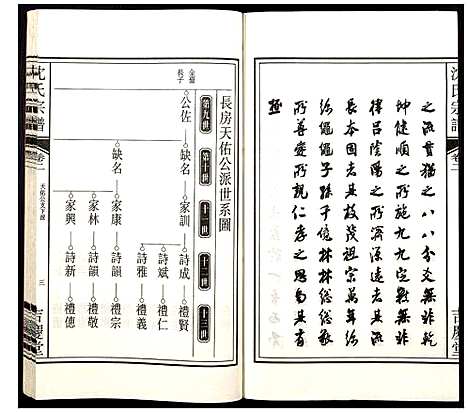 沈氏宗譜
卷二
吉慶堂
之流貫猶之八八爻無非乾
坤健順之所施九九疇無非
律呂陰陽之所濟源遠者流
長本固者其枝茂祖宗萬年綿
綿繩繩子孫千億林林總總敬
所尊愛所親仁孝之思旬其有
極
長房天佑公派世系圖
第九世
第十世
十一世
十二世
十三世
公佐
缺名
家訓
詩成
禮賢
詩斌
禮仁
詩雅
禮義
缺名
家康
詩韻
禮宗
家林
詩韻
禮敬
家興
詩新
禮德
沈氏宗譜
卷二
天佑公支下派
三
吉慶堂